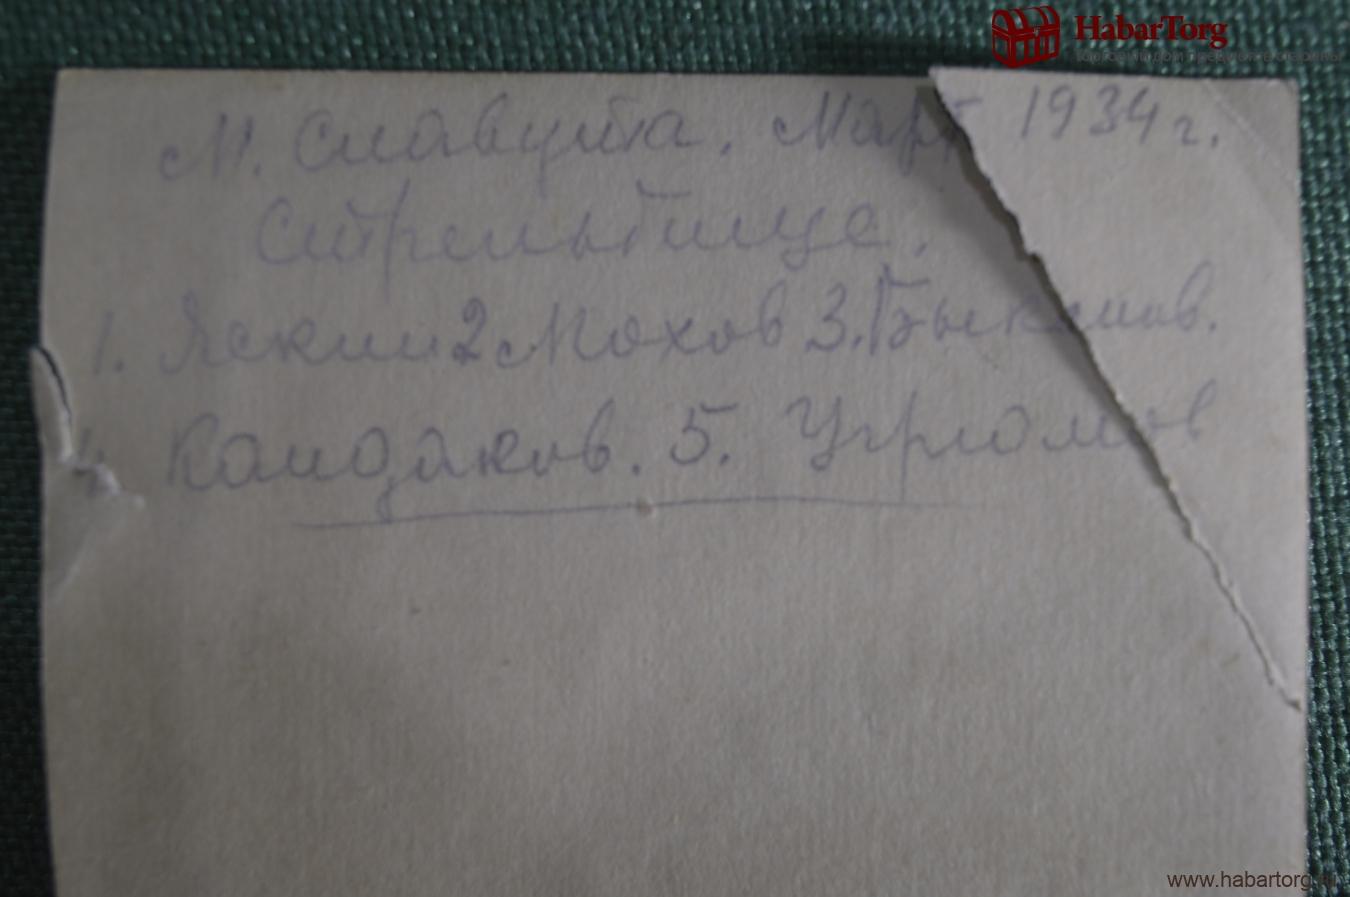 HabarTorg
М. Славута. Март 1934 г.
Стрельбище.
1. Яскин 2 Мохов 3. 
4. Кандаков. 5. Угрюмов
www.habartorg.ru